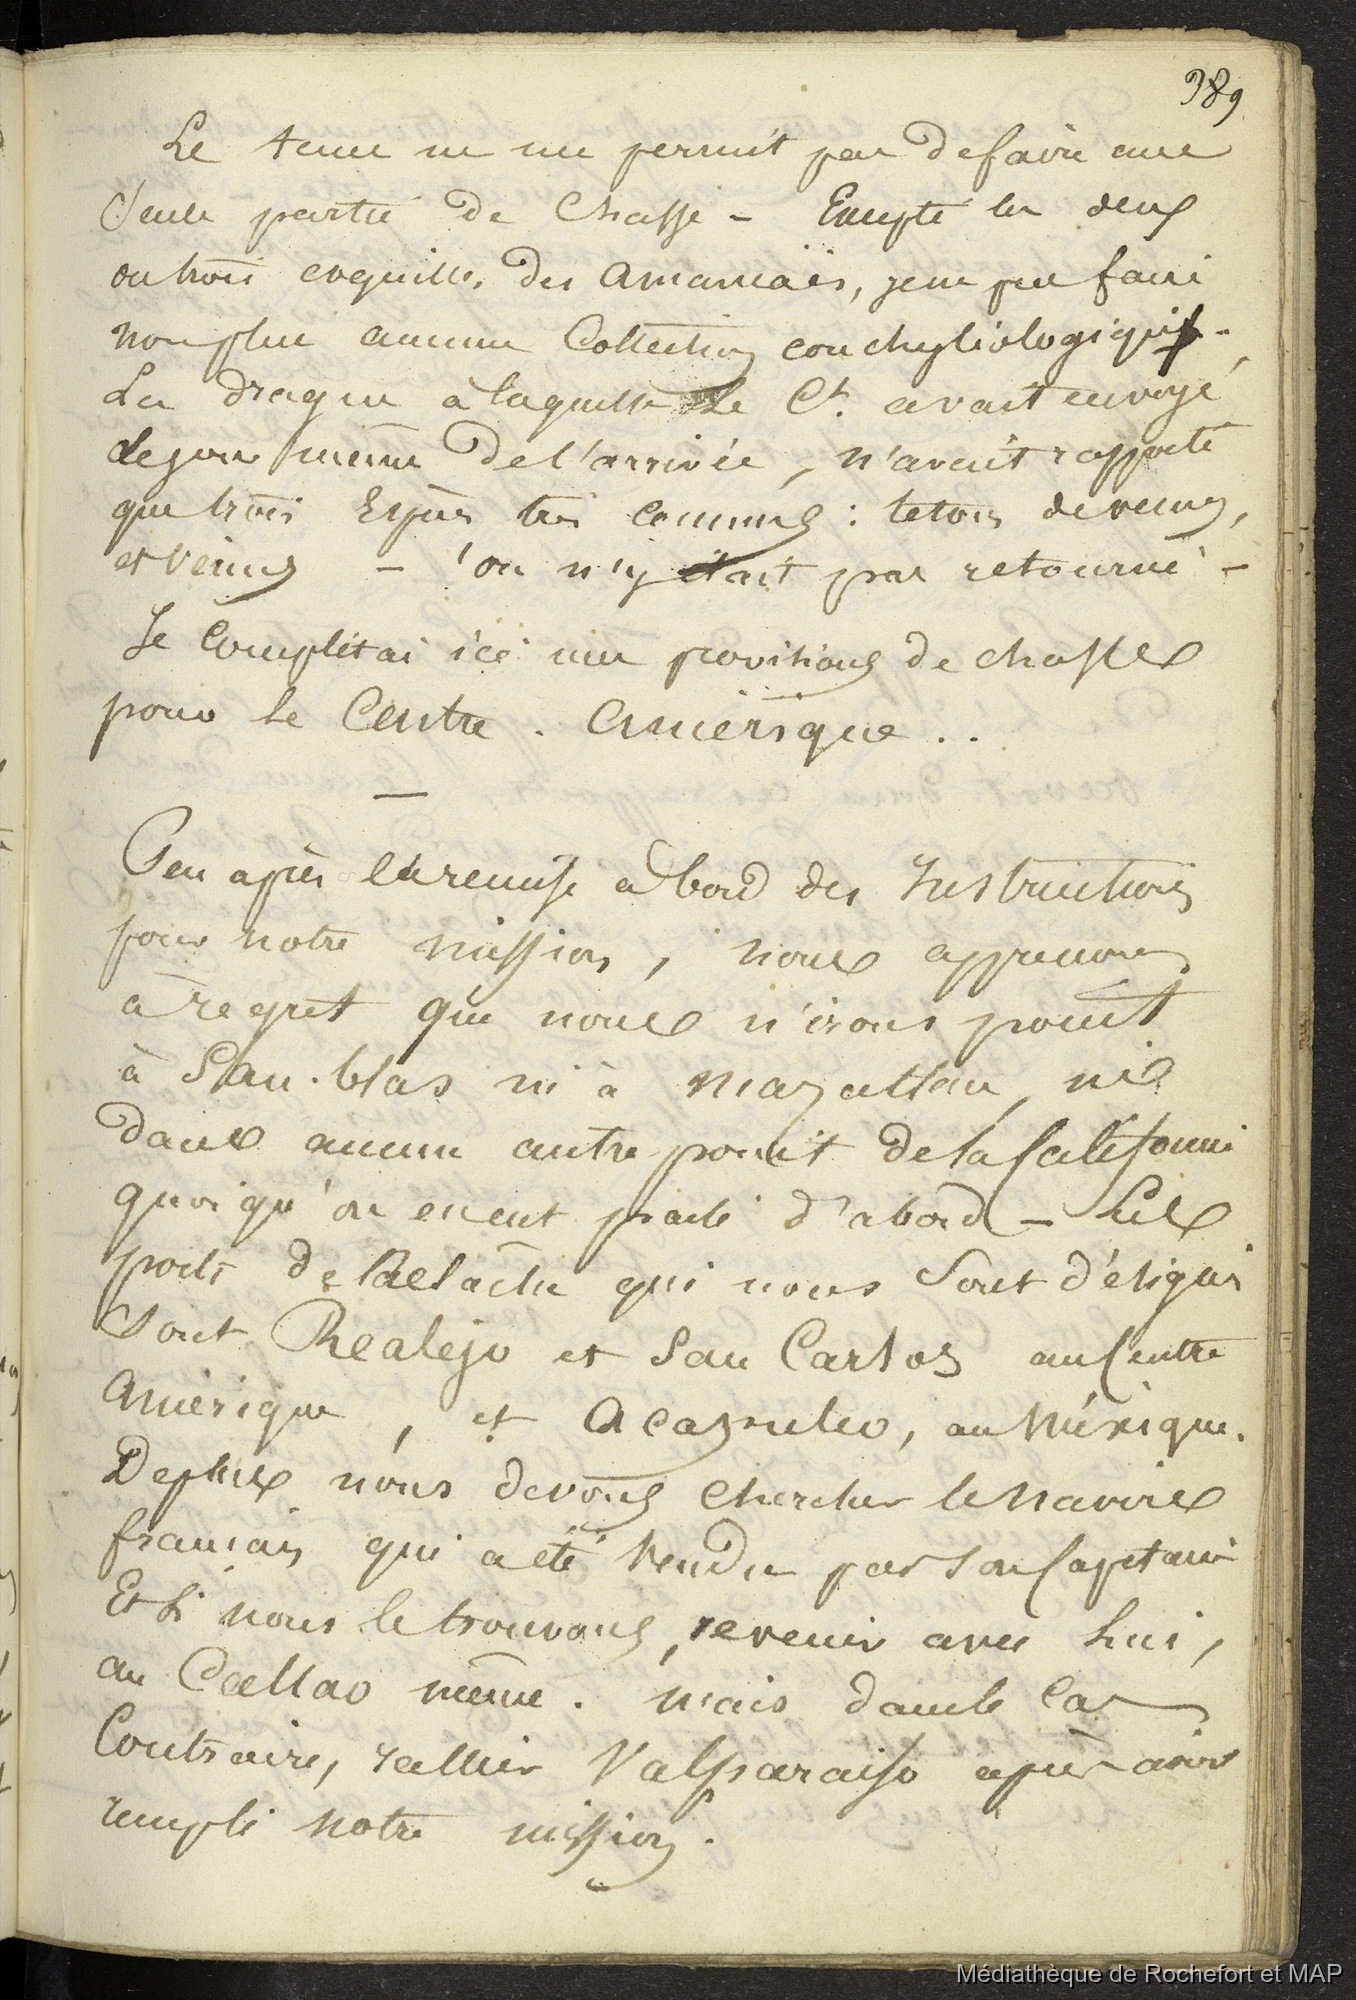 389
Le tems ne me permit pas de faire une
Seule partie de Chasse - Excepté les deux
ou trois coquilles, des Amancaës, je ne pus faire
non plus aucune Collection conchyliologique -
La drague à laquelle le Ct. avait envoyé
le jour même de l'arrivée, n'avait rapporté
que trois Espèces très communes : tetons de venus,
et Vénus - on n'y était pas retourné -
Je Complétai ici mes provisions de chasse
pour le Centre. Amérique ..
—
Peu après la remise à bord des Instructions
pour notre mission, nous apprenons
à regret que nous n'irons point
à San. blas ni à Mazatlan, ni
dans aucun autre point de la Californie
quoiqu'on en eut parlé d'abord - Les
ports de Relâche qui nous Sont désignés
Sont Realejo et San Carlos au Centre
Amérique, et Acapulco, au Méxique.
De plus nous devons chercher le navire
français qui a été Vendu par Son Capitaine
Et Si nous le trouvons, revenir avec lui,
au Callao même. mais dans le Cas
Contraire, rallier Valparaiso après avoir
rempli notre mission.
Médiathèque de Rochefort et MAP